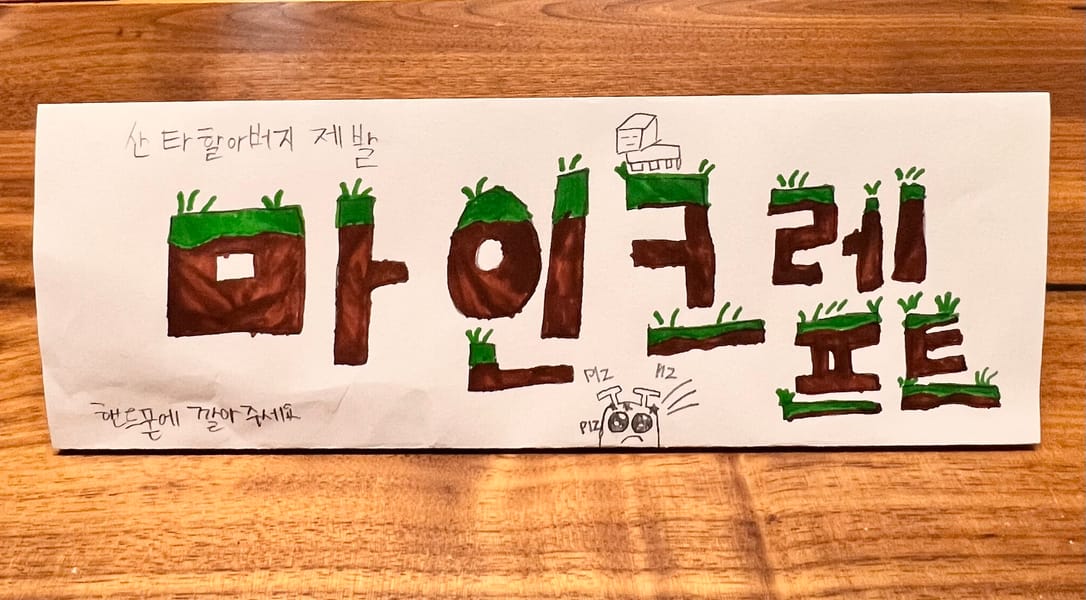 산타할아버지 제발
마인크레
프트
PLZ PLZ
PLZ
핸드폰에 깔아주세요